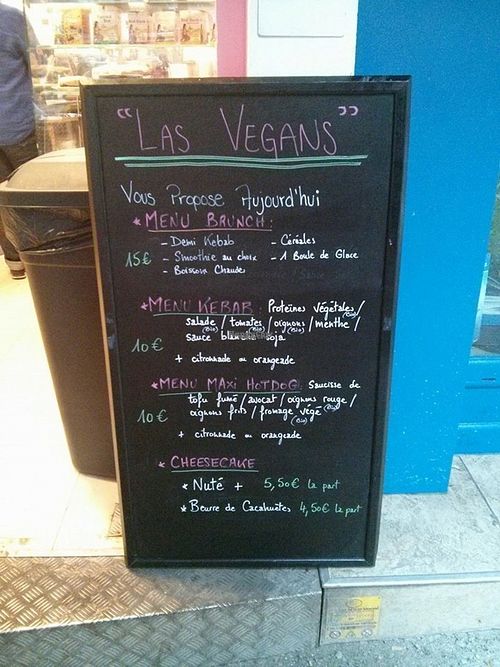 “LAS VEGANS”
Vous Propose Aujourd'hui
* MENU BRUNCH :
- Demi Kebab - Céréales
15€ - Smoothie au choix - 1 Boule de Glace
- Boisson Chaude
* MENU KEBAB : Proteines végétales (Bio) /
salade (Bio) / tomates (Bio) / oignons (Bio) / menthe /
sauce blanche soja
10€
+ citronnade ou orangeade
* MENU MAXI HOTDOG : Saucisse de
tofu fumé / avocat / oignons rouge /
10€ oignons frits / fromage végé (Bio)
+ citronnade ou orangeade
* CHEESECAKE
* Nuté + 5,50€ la part
* Beurre de Cacahuètes 4,50€ la part